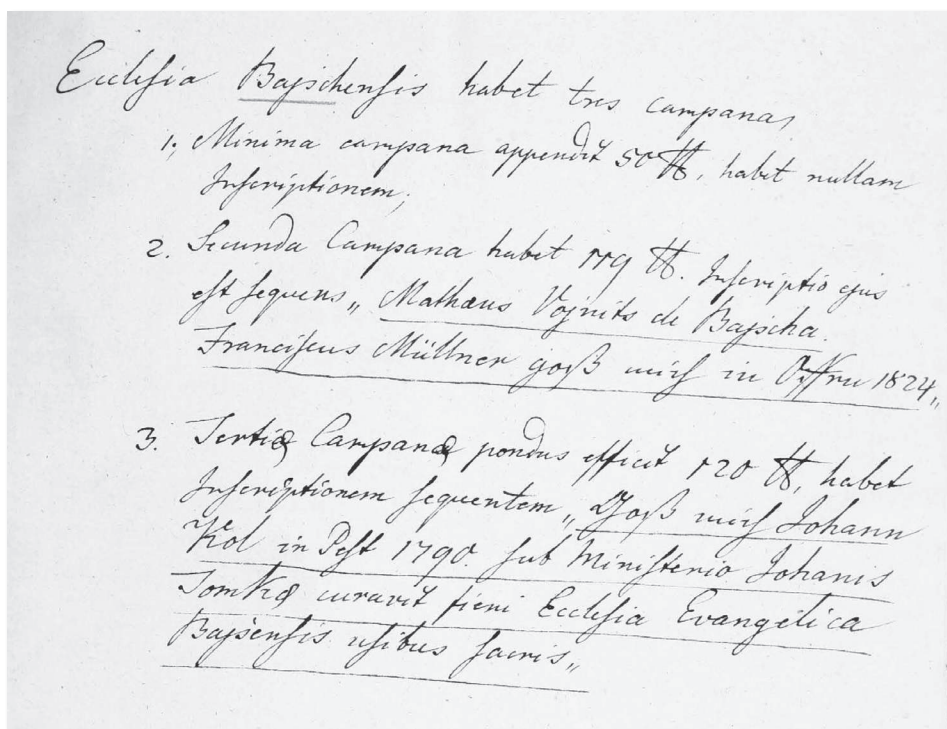 Ecclesia Bajschensis habet tres campanas
1., Minima campana appendit 50 ℔, habet nullam
Inscriptionem;
2. Secunda Campana habet 119 ℔. Inscriptio ejus
est sequens „ Mathæus Vojnits de Bajscha.
Franciscus Müllner goß mich in Offen 1824„
3. Tertiæ Campanæ pondus efficit 120 ℔, habet
Inscriptionem sequentem „ Goß mich Johann
Kol in Pest 1790. sub Ministerio Johanis
Tomkæ curavit fieri Ecclesia Evangelica
Bajsensis usibus sacris„